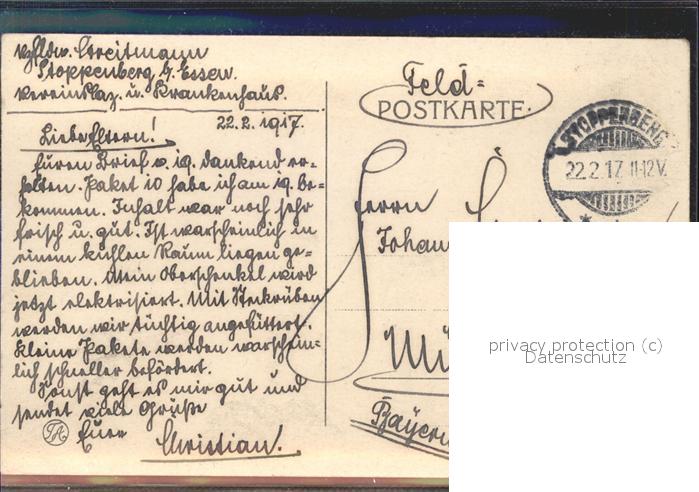 Vzfldw. Streitmann
Stoppenberg b. Essen.
Vereinslaz. u. Krankenhaus.
22.2.1917.
Liebe Eltern!
Euren Brief v. 19. dankend er=
halten. Paket 10 habe ich am 19. be=
kommen. Inhalt war noch sehr
frisch u. gut. Ist warscheinlich in
einem kühlen Raum liegen ge=
blieben. Mein Oberschenkel wird
jetzt elektrisiert. Mit Steckrüben
werden wir tüchtig angefüttert.
Kleine Pakete werden warschein=
lich schneller befördert.
Sonst geht es mir gut und
sendet viele Grüße
Euer
Christian.
Feld=
POSTKARTE.
STOPPENBERG
22.2.17. 11-12V.
Herrn
Johan
Mü
Bayern
privacy protection (c)
Datenschutz